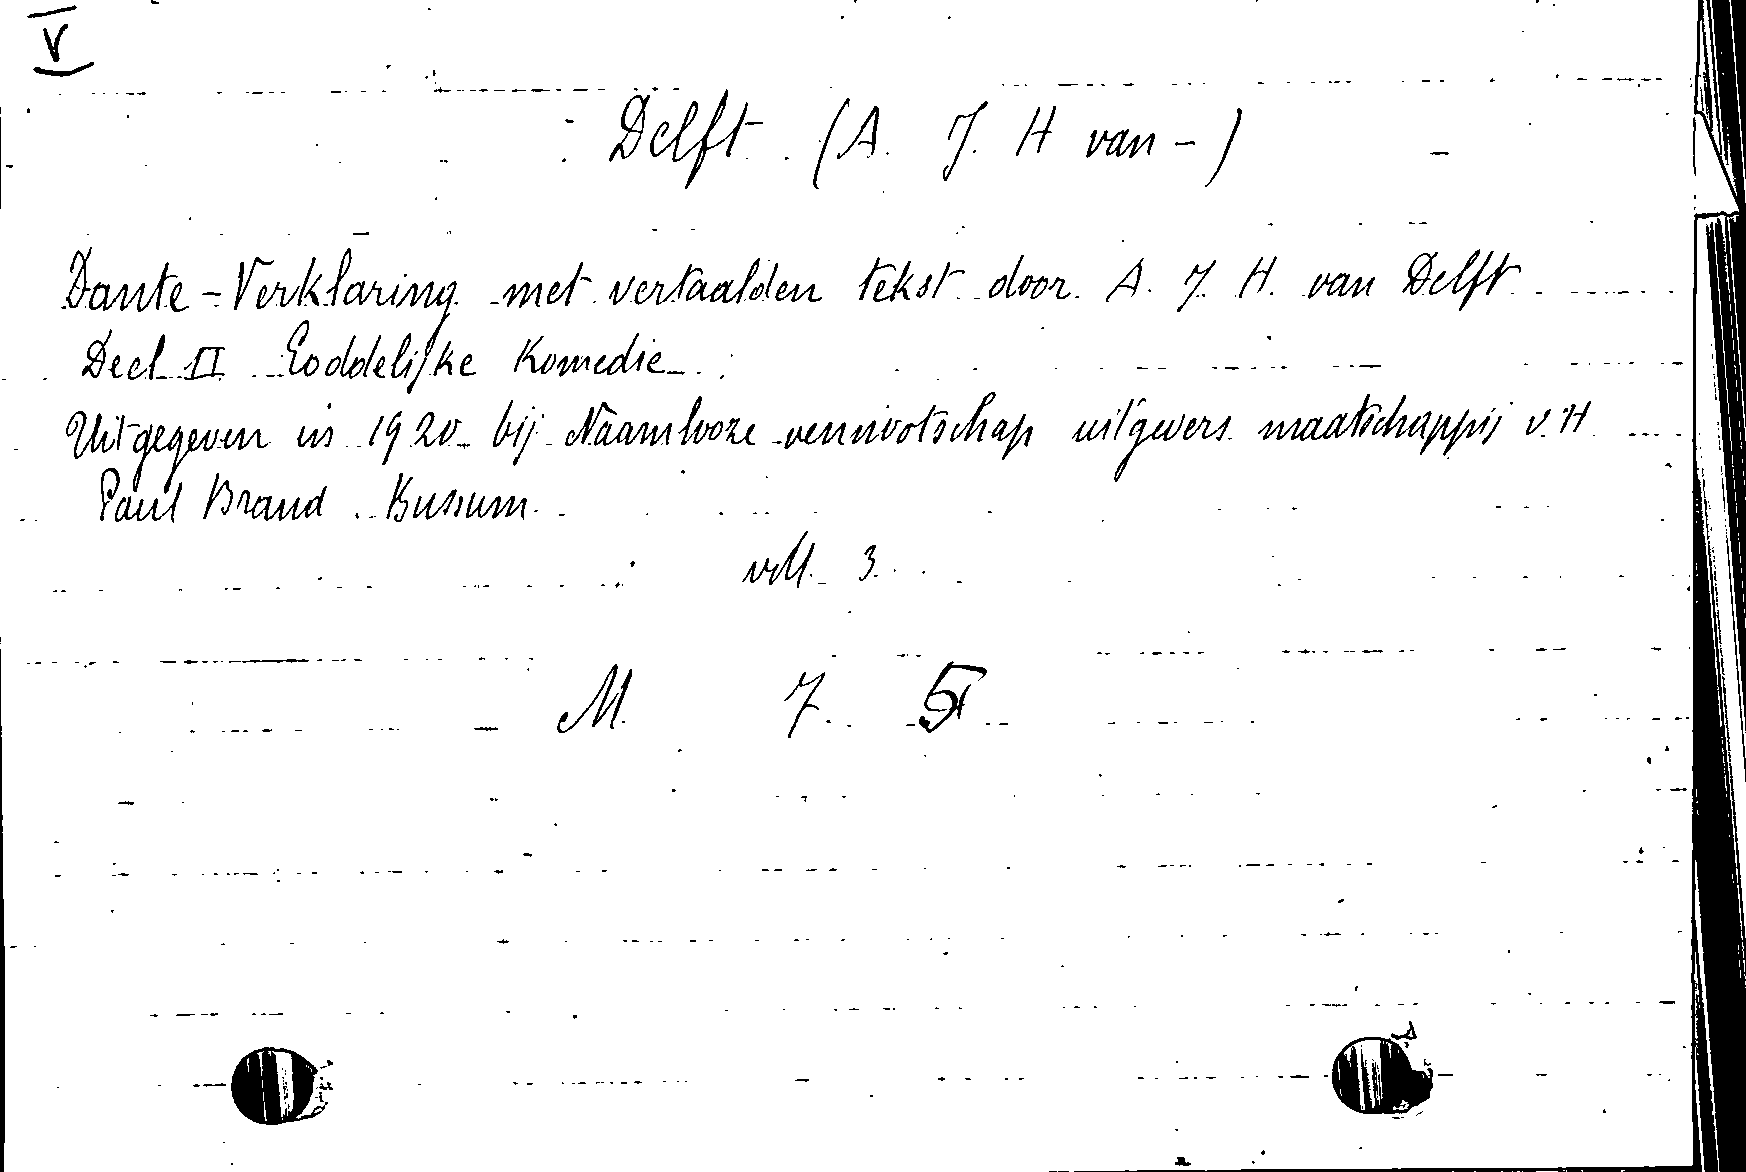 V
Delft (A. J. H van -)
Dante - Verklaring met vertaalden tekst door A. J. H. van Delft
Deel II Goddelijke Komedie
Uitgegeven in 1920 bij Naamlooze vennootschap uitgevers maatschappij v. H
Paul Brand Bussum
voll. 3.
M 7 5